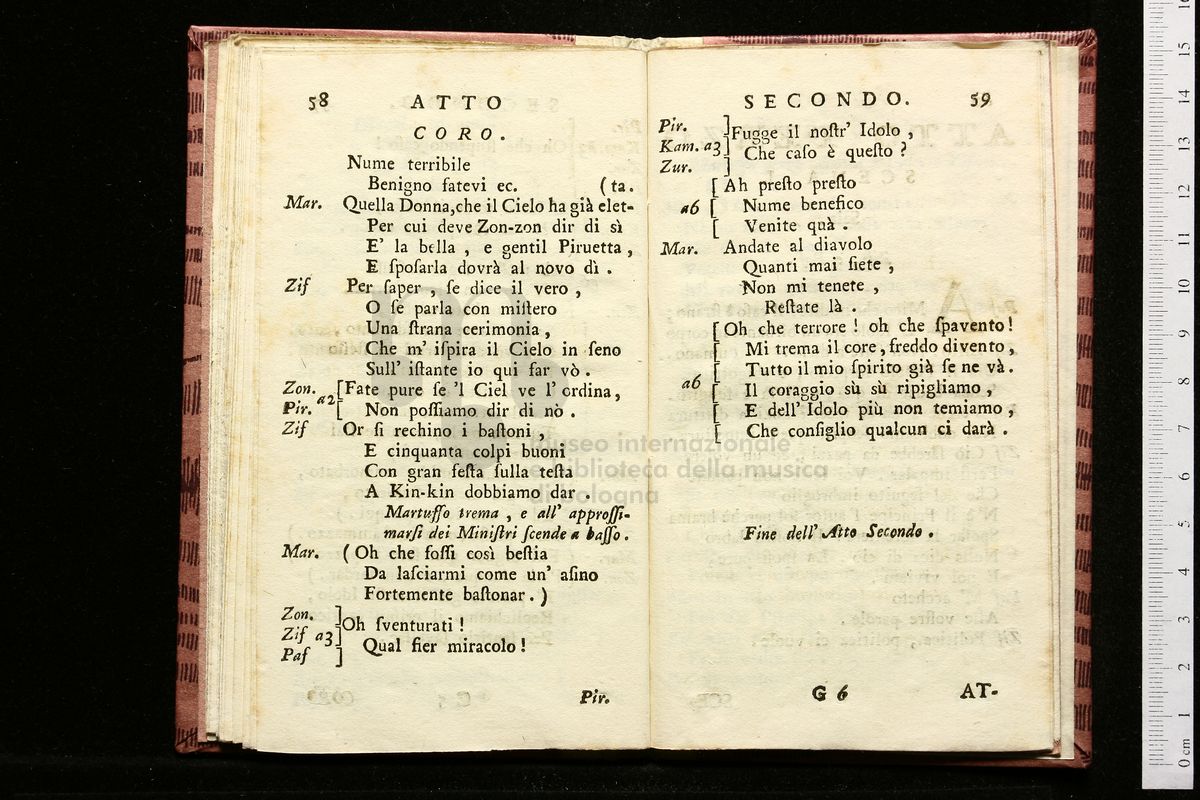 58 ATTO
CORO.
Nume terribile
Benigno fatevi ec. (ta.
Mar. Quella Donna, che il Cielo ha già elet-
Per cui deve Zon-zon dir di sì
E' la bella , e gentil Piruetta ,
E ſpoſarla dovrà al novo dì .
Zif Per ſaper , ſe dice il vero ,
O ſe parla con miſtero
Una ſtrana cerimonia ,
Che m' iſpira il Cielo in ſeno
Sull' iſtante io qui far vò .
Zon. [Fate pure ſe 'l Ciel ve l' ordina,
Pir. a2 [ Non poſſiamo dir di nò .
Zif Or ſi rechino i baſtoni ,
E cinquanta colpi buoni
Con gran feſta ſulla teſta
A Kin-kin dobbiamo dar .
Martuffo trema , e all' approſſi-
marſi dei Miniſtri ſcende a baſſo .
Mar. ( Oh che foſſi così beſtia
Da laſciarmi come un' aſino
Fortemente baſtonar . )
Zon. ]
Zif a3 ]Oh ſventurati !
Paf ] Qual fier miracolo !
Pir.
SECONDO. 59
Pir. ]Fugge il noſtr' Idolo ,
Kam. a3 ] Che caſo è queſto ?
Zur. ]
[ Ah preſto preſto
a6 [ Nume benefico
[ Venite quà .
Mar. Andate al diavolo
Quanti mai ſiete ,
Non mi tenete ,
Reſtate là .
[ Oh che terrore ! oh che ſpavento !
[ Mi trema il core, freddo divento,
[ Tutto il mio ſpirito già ſe ne và .
a6 [ Il coraggio sù sù ripigliamo ,
[ E dell' Idolo più non temiamo ,
[ Che conſiglio qualcun ci darà .
Fine dell' Atto Secondo .
G 6 AT-
Museo internazionale
e biblioteca della musica
di bologna
0 cm 1 2 3 4 5 6 7 8 9 10 11 12 13 14 15 16